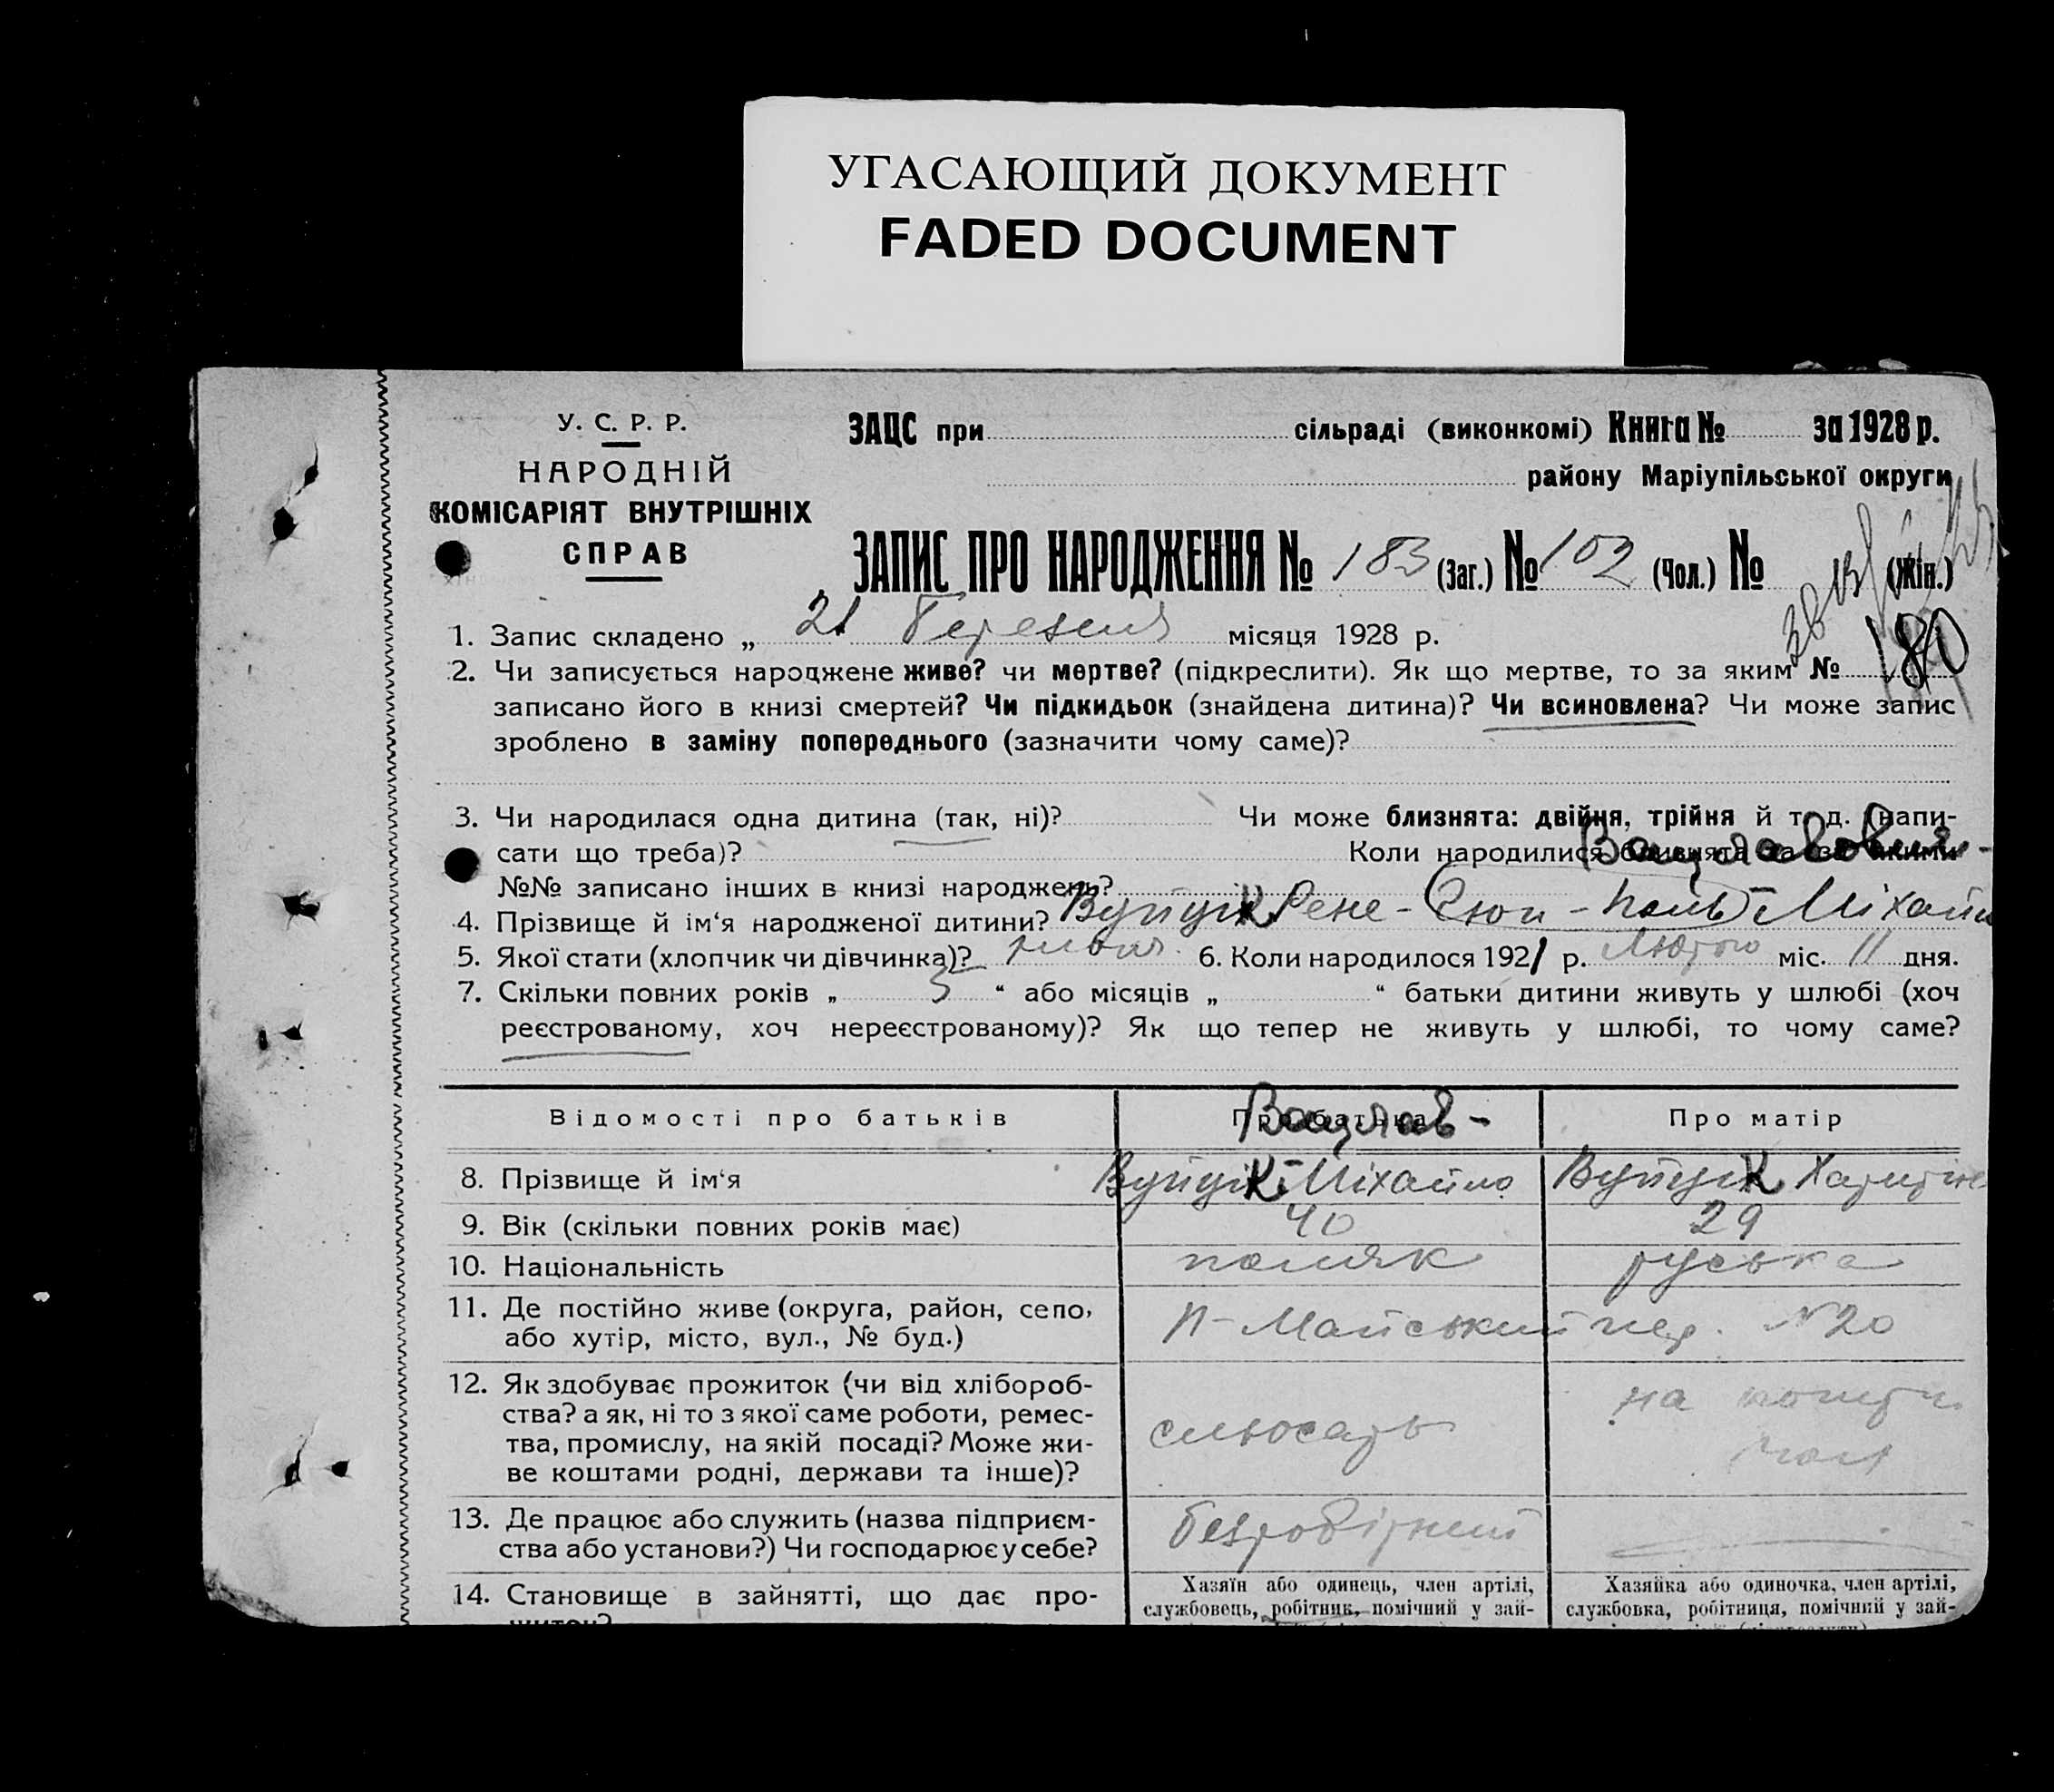 УГАСАЮЩИЙ ДОКУМЕНТ
FADED DOCUMENT
У. С. Р. Р.
НАРОДНІЙ
КОМІСАРІЯТ ВНУТРІШНІХ
СПРАВ
ЗАЦС при сільраді (виконкомі) Книга № за 1928 р.
району Маріупільської округи
ЗАПИС ПРО НАРОДЖЕННЯ № 183 (Заг.) № 102 (Чол.) № (Жін.)
1. Запис складено „ 21 Березня місяця 1928 р.
2. Чи записується народжене живе? чи мертве? (підкреслити). Як що мертве, то за яким №
записано його в книзі смертей? Чи підкидьок (знайдена дитина)? Чи всиновлена? Чи може запис
зроблено в заміну попереднього (зазначити чому саме)?
3. Чи народилася одна дитина (так, ні)? Чи може близнята: двійня, трійня й т. д. (напи-
сати що треба)? Коли народилися близнята та за якими
№№ записано інших в книзі народжень?
4. Прізвище й ім‘я народженої дитини? Вуйцик Рене-
5. Якої стати (хлопчик чи дівчинка)? 6. Коли народилось 1921 р. Лютого міс. 11 дня.
7. Скільки повних років „ 3 “ або місяців „ “ батьки дитини живуть у шлюбі (хоч
реєстрованому, хоч нереєстрованому)? Як що тепер не живуть у шлюбі, то чому саме?
Відомості про батьків Про батька Про матір
Вацлав-
8. Прізвище й ім‘я Вуйцик Міхайло Вуйцик
9. Вік (скільки повних років має) 40 29
10. Національність поляк руська
11. Де постійно живе (округа, район, село, П-Майський пер. №20
або хутір, місто, вул., № буд.)
12. Як здобуває прожиток (чи від хлібороб-
ства? а як, ні то з якої саме роботи, ремес- на
тва, промислу, на якій посаді? Може жи- слюсарь
ве коштами родні, держави та інше)?
13. Де працює або служить (назва підприєм- безробітний
ства або установи?) Чи господарює у себе?
14. Становище в зайнятті, що дає про- Хазяїн або одинець, член артілі, Хазяйка або одиночка, член артілі,
службовець, робітник, помічний у зай- службовка, робітниця, помічний у зай-